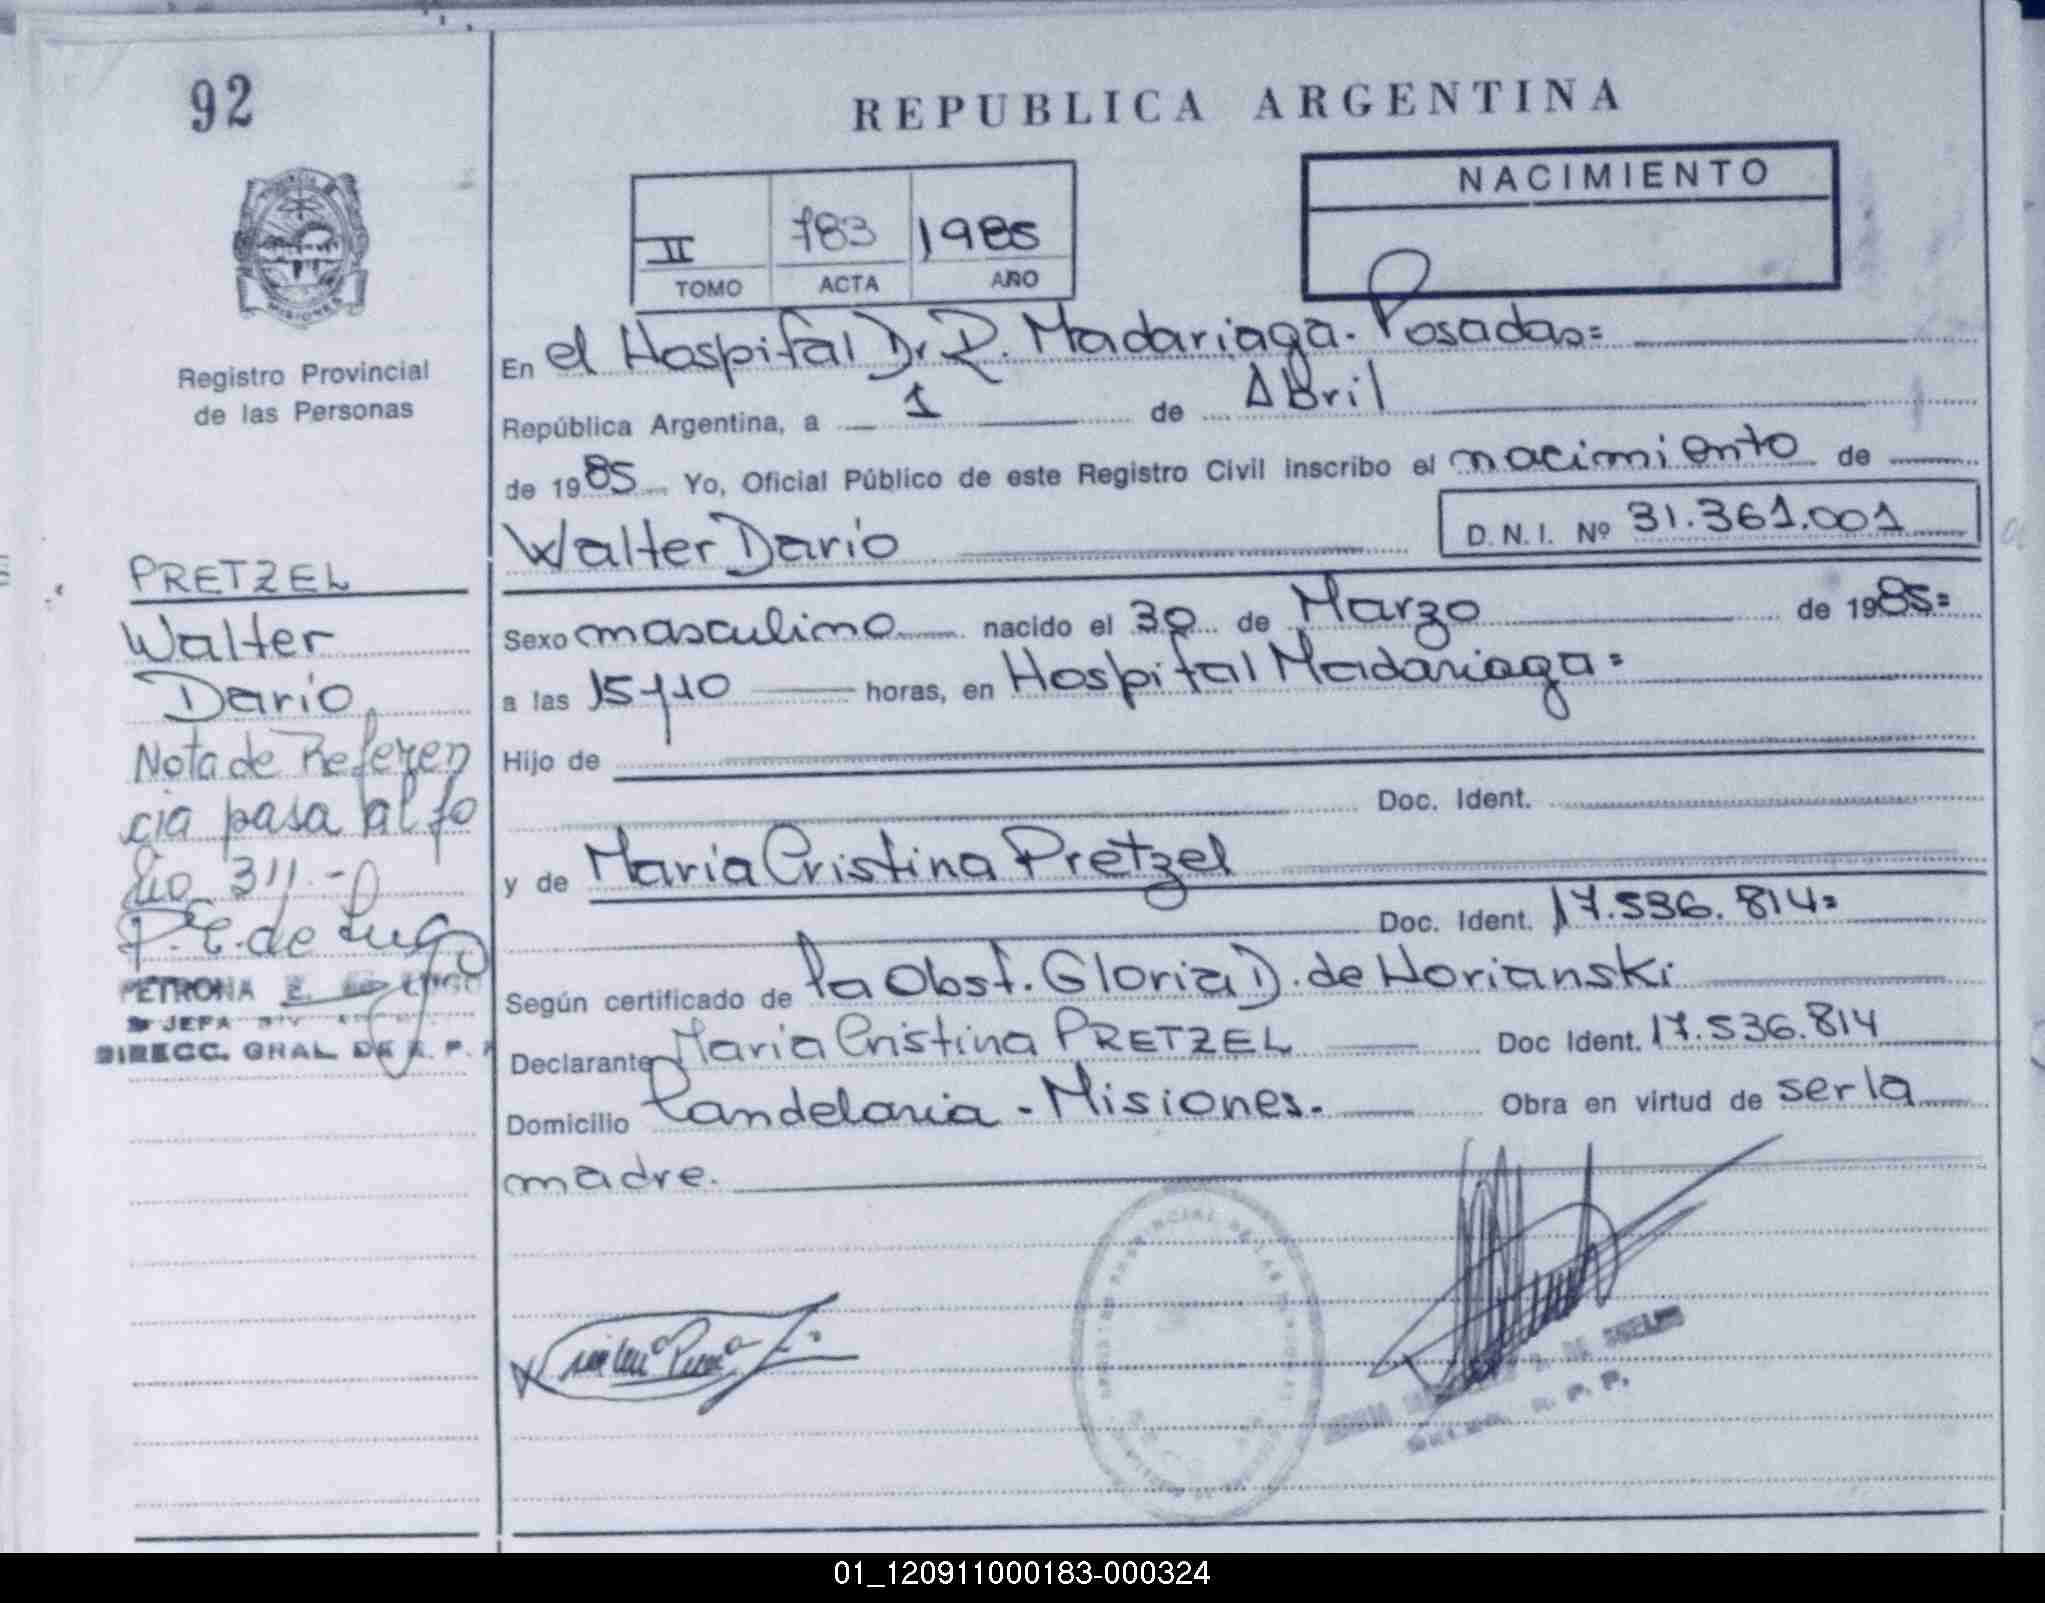 92
REPUBLICA ARGENTINA
NACIMIENTO
II 783 1985
TOMO ACTA AÑO
MISIONES
Registro Provincial
de las Personas
En el Hospital Dr R. Madariaga. Posadas=
República Argentina, a 1 de Abril
de 1985 Yo, Oficial Público de este Registro Civil inscribo el nacimiento de
Walter Dario D. N. I. Nº 31.361.001
PRETZEL
Walter
Dario
Nota de Referen
cia pasa al fo
lio 311.-
P. E. de Lugo
PETRONA E. DE LUGO
JEFA DIV
DIRECC. GRAL. DE R. P. P
Sexo masculino nacido el 30 de Marzo de 1985=
a las 15y10 horas, en Hospital Madariaga=
Hijo de
Doc. Ident.
y de Maria Cristina Pretzel
Doc. Ident. 17.536.814=
Según certificado de la Obst. Gloria D. de Horianski
Declarante Maria Cristina PRETZEL Doc Ident. 17.536.814
Domicilio Candelaria - Misiones. Obra en virtud de ser la
madre.
R. P. P.
01_120911000183-000324